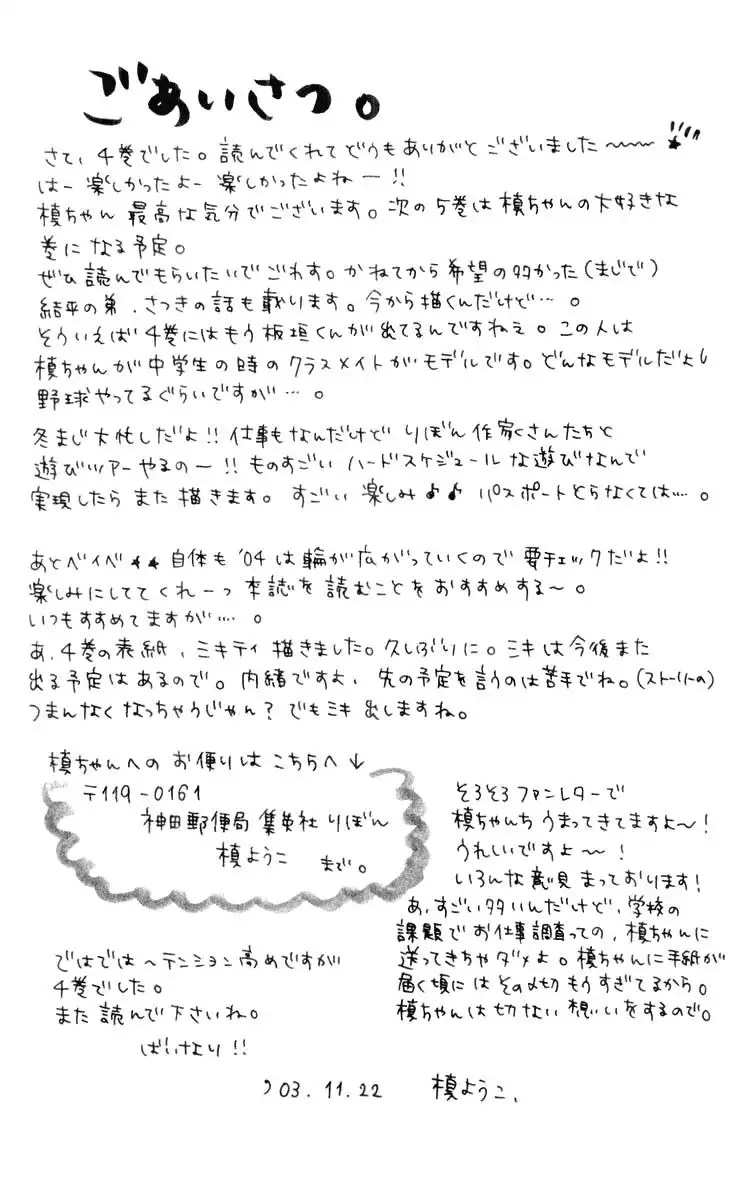 ごあいさつ。
さて、4巻でした。読んでくれてどうもありがとございました〜〜
はー楽しかったよー楽しかったよねー!!
槙ちゃん最高な気分でございます。次の5巻は槙ちゃんの大好きな
巻になる予定。
ぜひ読んでもらいたいでごわす。かねてから希望の多かった(まじで)
結平の弟、さつきの話も載ります。今から描くんだけど…。
そういえば4巻にはもう板垣くんが出てるんですねぇ。この人は
槙ちゃんが中学生の時のクラスメイトがモデルです。どんなモデルだよ!
野球やってるぐらいですが…。
冬まじ大忙しだよ!!仕事もなんだけどりぼん作家さんたちと
遊びツアーやるの〜!!ものすごいハードスケジュールな遊びなんで
実現したらまた描きます。すごい楽しみ♪♪パスポートとらなくては…。
あとベイベ★★自体も'04は輪が広がっていくので要チェックだよ!!
楽しみにしててくれーっ本誌を読むことをおすすめする〜。
いつもすすめてますが…。
あ、4巻の表紙、ミキティ描きました。久しぶりに。ミキは今後また
出る予定はあるので。内緒ですよ、先の予定を言うのは苦手でね。(ストーリーの)
つまんなくなっちゃうじゃん?でもミキ出しますね。
槙ちゃんへのお便りはこちらへ↓
〒119-0161
神田郵便局集英社りぼん
槙ようこ まで。
そろそろファンレターで
槙ちゃんちうまってきてますよ〜!
うれしいですよ〜!
いろんな意見まっております!
あ、すごい多いんだけど、学校の
課題でお仕事調査っての、槙ちゃんに
送ってきちゃダメよ。槙ちゃんに手紙が
届く頃にはその〆切もうすぎてるから。
槙ちゃんは切ない想いをするので。
ではでは〜テンション高めですが
4巻でした。
また読んで下さいね。
ばいなり!!
'03.11.22 槙ようこ、